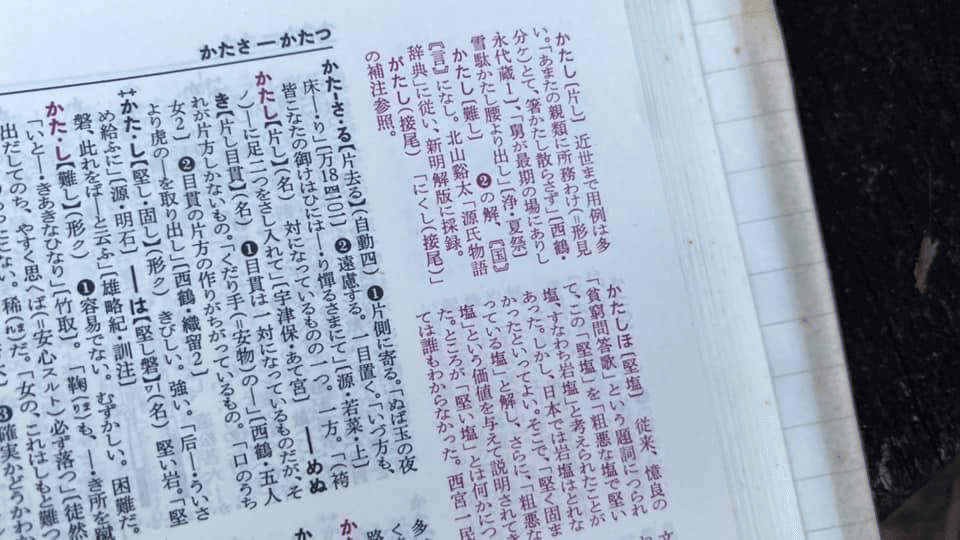 かたさ―かたつ
かたし【片し】 近世まで用例は多
い。「あまたの親類に所務わけ(=形見
分ケ)とて、箸かたし散らさず」〔西鶴・
永代蔵1〕、「舅が最期の場にありし
雪駄かたし腰より出し」〔浄・夏祭〕
かたし【難し】 ❷の解、〖国〗
〖言〗になし。北山谿太「源氏物語
辞典」に従い、新明解版に採録。
がたし(接尾) 「にくし(接尾)」
の補注参照。
かたしほ【堅塩】 従来、憶良の
「貧窮問答歌」という題詞につられ
て、この「堅塩」を「粗悪な塩で堅い
塩、すなわち岩塩」と考えられたことが
あった。しかし、日本では岩塩はとれな
かったといってよい。そこで、「堅く固ま
っている塩」と解し、さらに、「粗悪な
塩」という価値を与えて説明されてき
た。ところが「堅い塩」とは何かにつ
ては誰もわからなかった。西宮一民
かた-さ・る【片去る】(自動四) ❶片側に寄る。「ぬば玉の夜
床―・り」〔万18四一〇一〕 ❷遠慮する。一目置く。「いづ方も、
皆こなたの御けはひには―・り憚るさまにて」〔源・若菜・上〕
かたし【片し】(名) 対になっているものの一つ。一方。「(袴
ノ)―に足二つをさし入れて」〔宇津保・あて宮〕 ―めぬ
き【片し目貫】(名) ❶目貫は一対になっているものだが、そ
れが片方しかないもの。「くだり手(=安物)の―」〔西鶴・五人
女2〕 ❷目貫の片方の作りがちがっているもの。「口のうち
より虎の―を取り出し」〔西鶴・織留2〕
かた・し【堅し・固し】(形ク) きびしい。強い。「后―・ういさ
め給ふに」〔源・明石〕 ―は【堅し磐】(名) 堅い岩。「堅
磐、此れをば―と云ふ」〔雄略紀・訓注〕
かた・し【難し】(形ク) ❶容易でない。むずかしい。困難だ。
「いと―・きあきなひなり」〔竹取〕。「鞠(まり)も、―・き所を蹴
出だしてのち、やすく思へば(=安心スルト)必ず落つ」〔徒然